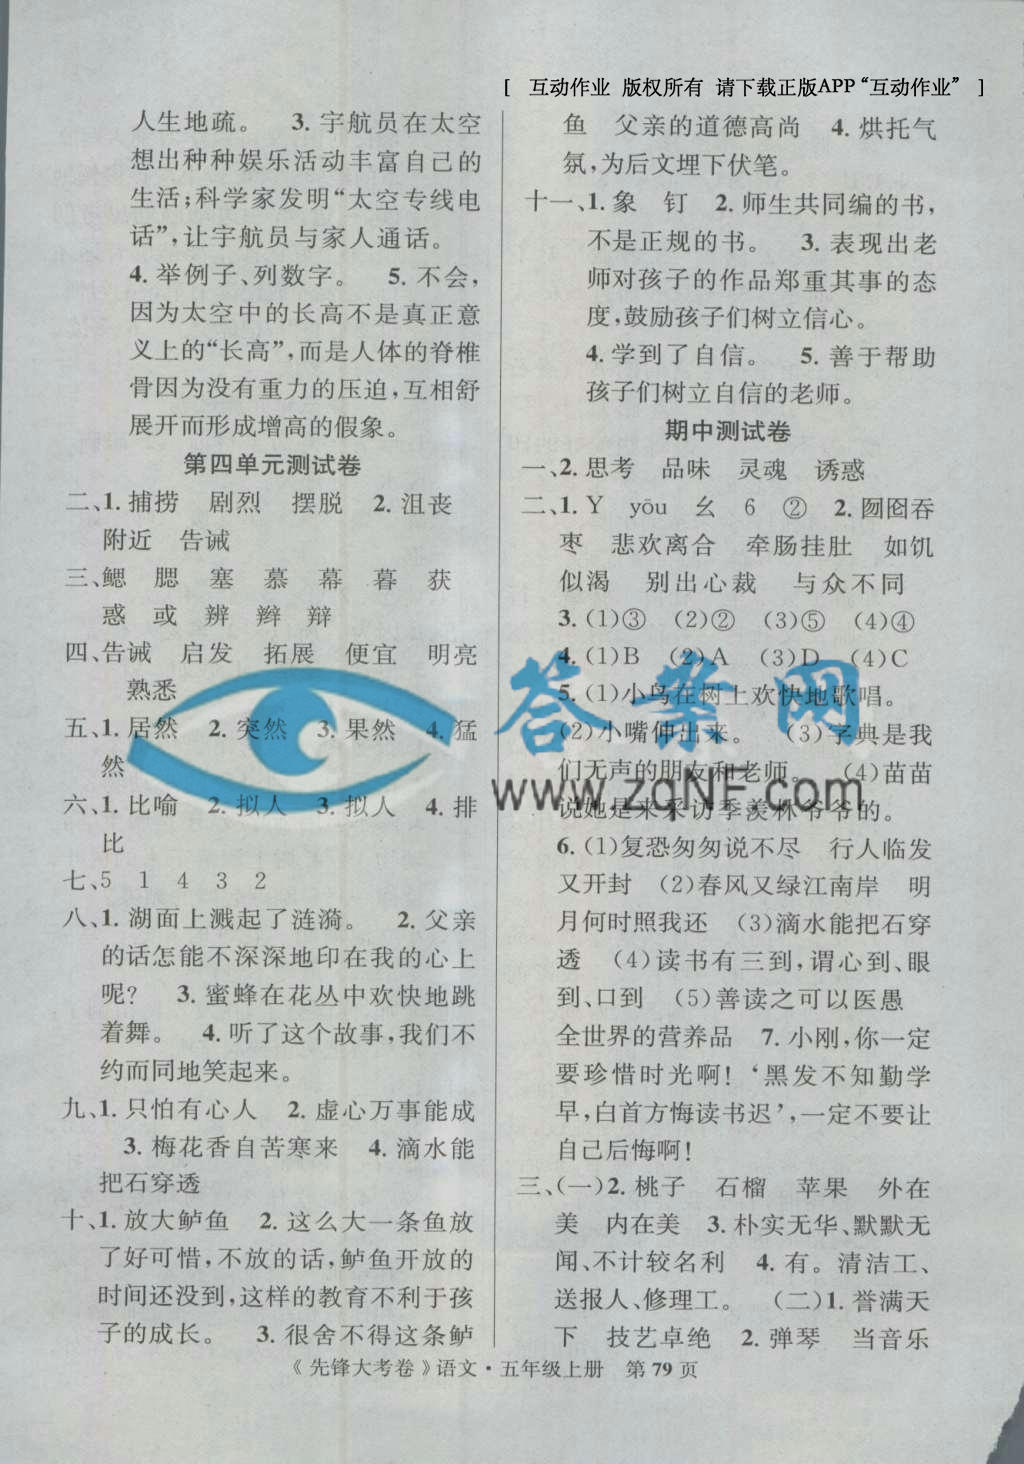 [ 互动作业 版权所有 请下载正版APP“互动作业” ]
人生地疏。 3. 宇航员在太空
想出种种娱乐活动丰富自己的
生活;科学家发明“太空专线电
话”,让宇航员与家人通话。
4. 举例子、列数字。 5. 不会,
因为太空中的长高不是真正意
义上的“长高”,而是人体的脊椎
骨因为没有重力的压迫,互相舒
展开而形成增高的假象。
第四单元测试卷
二、1. 捕捞 剧烈 摆脱 2. 沮丧
附近 告诫
三、鳃 腮 塞 慕 幕 暮 获
惑 或 辨 辫 辩
四、告诫 启发 拓展 便宜 明亮
熟悉
五、1. 居然 2. 突然 3. 果然 4. 猛
然
六、1. 比喻 2. 拟人 3. 拟人 4. 排
比
七、5 1 4 3 2
八、1. 湖面上溅起了涟漪。 2. 父亲
的话怎能不深深地印在我的心上
呢? 3. 蜜蜂在花丛中欢快地跳
着舞。 4. 听了这个故事,我们不
约而同地笑起来。
九、1. 只怕有心人 2. 虚心万事能成
3. 梅花香自苦寒来 4. 滴水能
把石穿透
十、1. 放大鲈鱼 2. 这么大一条鱼放
了好可惜,不放的话,鲈鱼开放的
时间还没到,这样的教育不利于孩
子的成长。 3. 很舍不得这条鲈
鱼 父亲的道德高尚 4. 烘托气
氛,为后文埋下伏笔。
十一、1. 象 钉 2. 师生共同编的书,
不是正规的书。 3. 表现出老
师对孩子的作品郑重其事的态
度,鼓励孩子们树立信心。
4. 学到了自信。 5. 善于帮助
孩子们树立自信的老师。
期中测试卷
一、2. 思考 品味 灵魂 诱惑
二、1. Y yōu 幺 6 ② 2. 囫囵吞
枣 悲欢离合 牵肠挂肚 如饥
似渴 别出心裁 与众不同
3. (1)③ (2)② (3)⑤ (4)④
4. (1)B (2)A (3)D (4)C
5. (1)小鸟在树上欢快地歌唱。
(2)小嘴伸出来。 (3)字典是我
们无声的朋友和老师。 (4)苗苗
说她是来采访季羡林爷爷的。
6. (1)复恐匆匆说不尽 行人临发
又开封 (2)春风又绿江南岸 明
月何时照我还 (3)滴水能把石穿
透 (4)读书有三到,谓心到、眼
到、口到 (5)善读之可以医愚
全世界的营养品 7. 小刚,你一定
要珍惜时光啊!‘黑发不知勤学
早,白首方悔读书迟’,一定不要让
自己后悔啊!
三、(一)2. 桃子 石榴 苹果 外在
美 内在美 3. 朴实无华、默默无
闻、不计较名利 4. 有。清洁工、
送报人、修理工。 (二)1. 誉满天
下 技艺卓绝 2. 弹琴 当音乐
《先锋大考卷》语文·五年级上册 第 79 页
答案网
www.zqNF.com